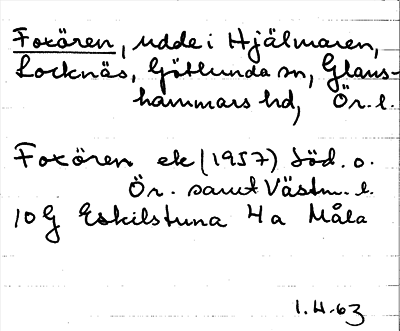 Foxören, udde i Hjälmaren,
Locknäs, Götlunda sn, Glans-
hammars hd, Ör. l.
Foxören ek (1957) Söd. o.
Ör. samt Västm. l.
10 G Eskilstuna 4 a Måla
1.4.63